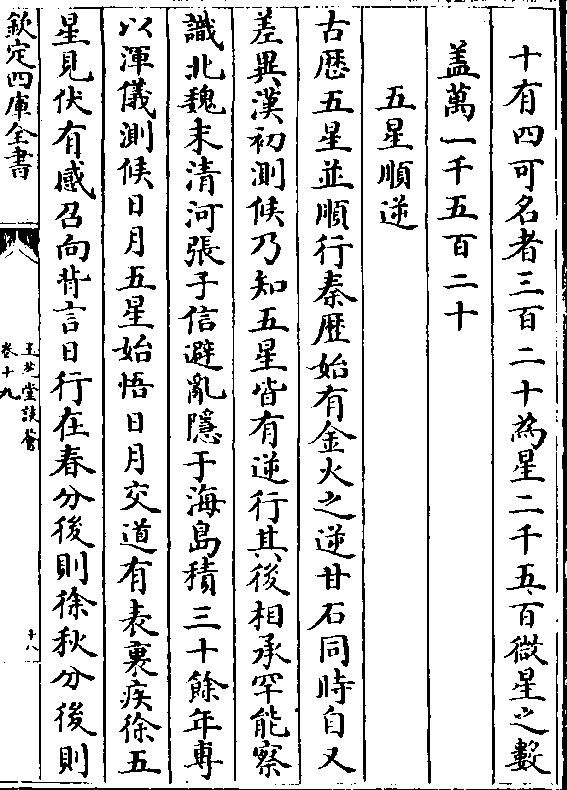 十有四可名者三百二十為星二千五百微星之數
盖萬一千五百二十
五星順逆
古歴五星並順行秦歴始有金火之逆甘石同時自又
差異漢初測候乃知五星皆有逆行其後相承罕能察
識北魏末清河張子信避亂隱于海島積三十餘年專
以渾儀測候日月五星始悟日月交道有表裏疾徐五
星見伏有感召向背言日行在春分後則徐秋分後則
欽定四庫全書
玉芝堂談薈
卷十九
十八